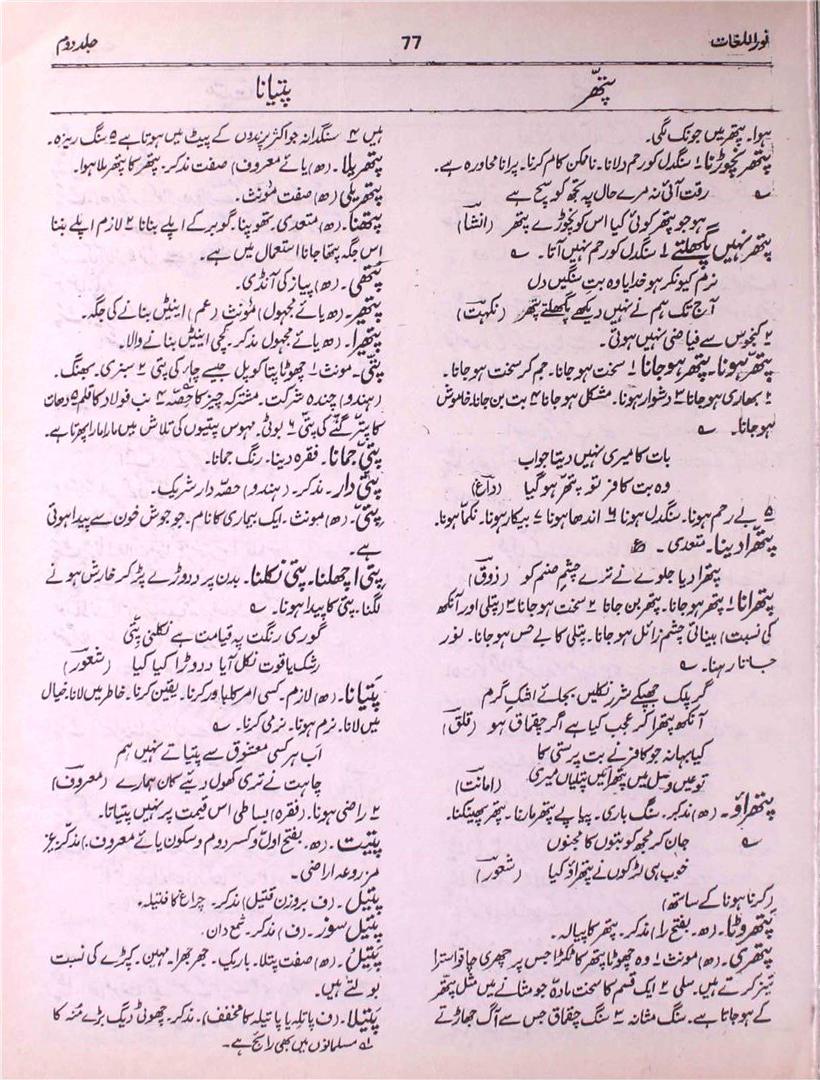 نوراللغات
77
جلد دوم
پتھّر
پتیانا
ہوا۔ پتھر میں جونک لگی۔
پتھر نچوڑنا ۱ سنگدل کو رحم دلانا۔ ناممکن کام کرنا۔ پرانا محاورہ ہے۔
؎ رقت آئی نہ مرے حال پہ تجھ کو سچ ہے
ہو جو پتھر کوئی کیا اس کو نچوڑے پتھر (انشاؔ)
پتھر نہیں پگھلتے ۱ سنگدل کو رحم نہیں آتا۔ ؎
نرم کیونکر ہو خدایا وہ بت سنگیں دل
آج تک ہم نے نہیں دیکھے پگھلتے پتھر (نکہتؔ)
۲ کنجوس سے فیاضی نہیں ہوتی۔
پتھر ہونا۔ پتھر ہو جانا ۱ سخت ہو جانا۔ جم کر سخت ہو جانا۔
۲ بھاری ہو جانا ۳ دشوار ہونا۔ مشکل ہو جانا ۴ بت بن جانا۔ خاموش
ہو جانا۔ ؎
بات کا میری نہیں دیتا جواب
وہ بت کافر تو پتھر ہو گیا (داغؔ)
۵ بے رحم ہونا۔ سنگدل ہونا ۶ اندھا ہونا ۷ بیکار ہونا۔ نکما ہونا۔
پتھرا دینا۔ متعدی۔ ع
پتھرا دیا جلوے نے ترے چشم صنم کو (ذوقؔ)
پتھرانا ۱ پتھر ہو جانا۔ پتھر بن جانا ۲ سخت ہو جانا ۳ (پتلی اور آنکھ
کی نسبت) بینائی چشم زائل ہو جانا۔ پتلی کا بے حس ہو جانا۔ نور
جاتا رہنا۔ ؎
گر پلک جھپکے شرر نکلیں بجائے اشک گرم
آنکھ پتھرا کر عجب کیا ہے اگر چقماق ہو (قلقؔ)
کیا بہانہ جو کافر نے بت پرستی کا
تو عین وصل میں پتھرائیں پتلیاں میری (امانتؔ)
پتھراؤ۔ (ھ) مذکر۔ سنگ باری۔ پیاپے پتھر مارنا۔ پتھر پھینکنا۔
؎ جان کر مجھ کو بتوں کا مجنوں
خوب ہی لڑکوں نے پتھراؤ کیا (شعورؔ)
(کرنا ہونا کے ساتھ)
پتھروٹا۔ (ھ۔ بفتح را) مذکر۔ پتھر کا پیالہ۔
پتھری۔ (ھ) مونث ۱ وہ چھوٹا پتھر کا ٹکڑا جس پر چھری چاقو استرا
تیز کرتے ہیں۔ سلی ۲ ایک قسم کا سخت مادہ جو مثانے میں مثل پتھر
کے ہو جاتا ہے۔ سنگ مثانہ ۳ سنگ چقماق جس سے آگ جھاڑتے
ہیں ۴ سنگدانہ جو اکثر پرندوں کے پیٹ میں ہوتا ہے ۵ سنگ ریزہ۔
پتھریلا۔ (ھ) یائے معروف) صفت مذکر۔ پتھر کا پتھر ملا ہوا۔
پتھریلی (ھ) صفت مونث۔
پتھنا۔ (ھ) متعدی۔ تھوپنا۔ گوبر کے اپلے بنانا ۲ لازم اپلے بننا
اس جگہ پتھا جانا استعمال میں ہے۔
پتھی۔ (ھ) پیاز کی آنڈی۔
پتھیر۔ (ھ یائے مجہول) مونث (عم) اینٹیں بنانے کی جگہ۔
پتھیرا۔ (ھ یائے مجہول مذکر۔ کچی اینٹیں بنانے والا۔
پتی۔ مونث ۱ چھوٹا پتا کوپل جیسے چار کی پتی ۲ سبزی۔ بھنگ۔
(ہندو) چندہ شرکت۔ مشترکہ چیز کا حصہ ۴ نب فولاد کا قلم ۵ دھان
کا پتر گنے کی پتی ۶ بوٹی۔ مہوس پتیوں کی تلاش میں مارا مارا پھرتا ہے۔
پتی جمانا۔ فقرہ دینا۔ رنگ جمانا۔
پتی دار۔ مذکر۔ (ہندو) حصہ دار شریک۔
پتی۔ (ھ) مونث۔ ایک بیماری کا نام۔ جو جوش خون سے پیدا ہوتی
ہے۔
پتی اچھلنا۔ پتی نکلنا۔ بدن پر ددوڑے پڑ کر خارش ہونے
لگنا۔ پتی کا پیدا ہونا۔ ؎
گوری رنگت پہ قیامت ہے نکلنی پتی
رشک یاقوت نکل آیا ددوڑا کیا کیا (شعورؔ)
پتیانا۔ (ھ) لازم۔ کسی امر کا باور کرنا۔ یقین کرنا۔ خاطر میں لانا۔ خیال
میں لانا۔ نرم ہونا۔ نرمی کرنا۔ ؎
اب ہر کسی معشوق سے پتیاتے نہیں ہم
چاہت نے تری کھول دیئے کان ہمارے (معروفؔ)
۲ راضی ہونا۔ (فقرہ) بساطی اس قیمت پر نہیں پتیاتا۔
پتیت۔ (ھ۔ بفتح اول و کسر دوم و سکون یائے معروف) مذکر۔ غیر
مزروعہ اراضی۔
پتیل۔ (ف بروزن قتیل) مذکر۔ چراغ کا فتیلہ۔
پتیل سوز۔ (ف) مذکر۔ شمع دان۔
پتیل۔ (ھ) صفت پتلا۔ باریک۔ جھرجھرا۔ مہین۔ کپڑے کی نسبت
بولتے ہیں۔
پتیلا۔ (ف پاتلہ یا پاتیلہ کا مخفف)۔ مذکر۔ چھوٹی دیگ بڑے منہ کا
؎ مسلمانوں میں بھی رائج ہے۔